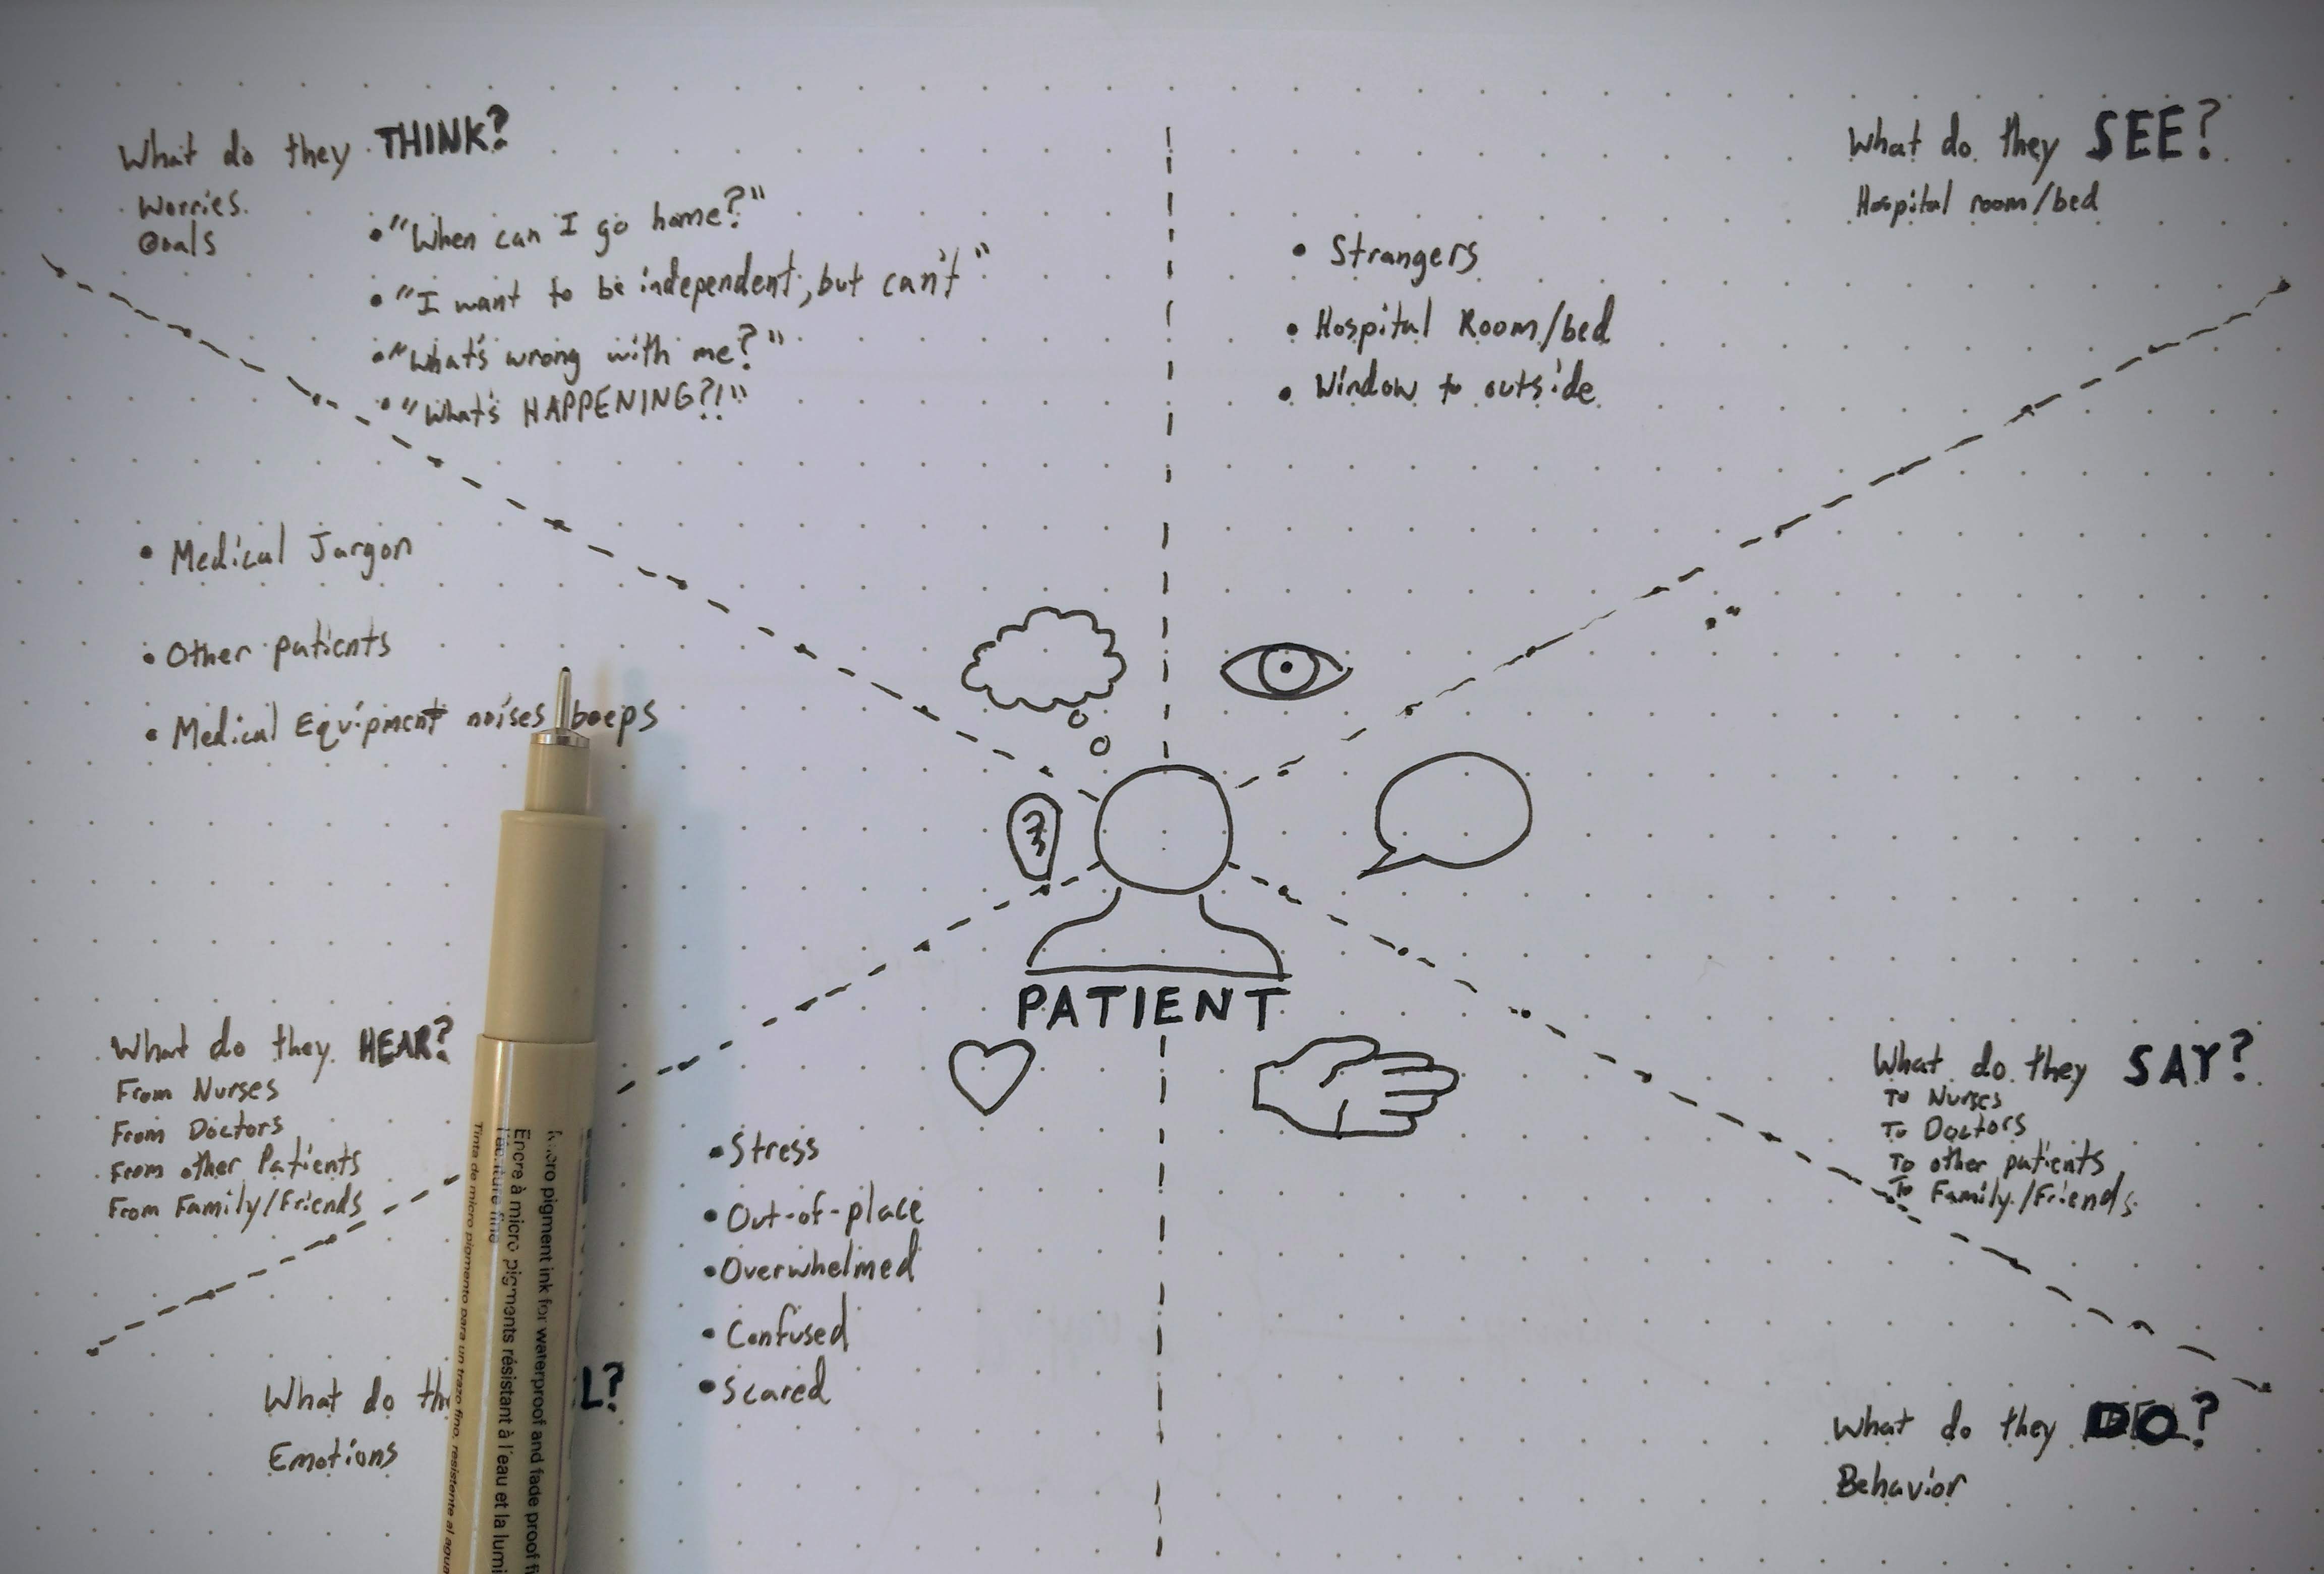 What do they THINK?
Worries
Goals
• "When can I go home?"
• "I want to be independent, but can't"
• "What's wrong with me?"
• "What's HAPPENING?!"
What do they SEE?
Hospital room/bed
• Strangers
• Hospital Room/bed
• Window to outside
• Medical Jargon
• Other patients
• Medical Equipment noises beeps
What do they HEAR?
From Nurses
From Doctors
From other Patients
From Family/Friends
PATIENT
What do they SAY?
To Nurses
To Doctors
To other patients
To Family/Friends
What do the L?
Emotions
• Stress
• Out-of-place
• Overwhelmed
• Confused
• Scared
What do they DO?
Behavior
pigment ink for waterproof and fade proof
Encre à micro pigments résistant à l'eau et la lumi
fine
Tinta de micro pigmento para un trazo fino, resistente al agua